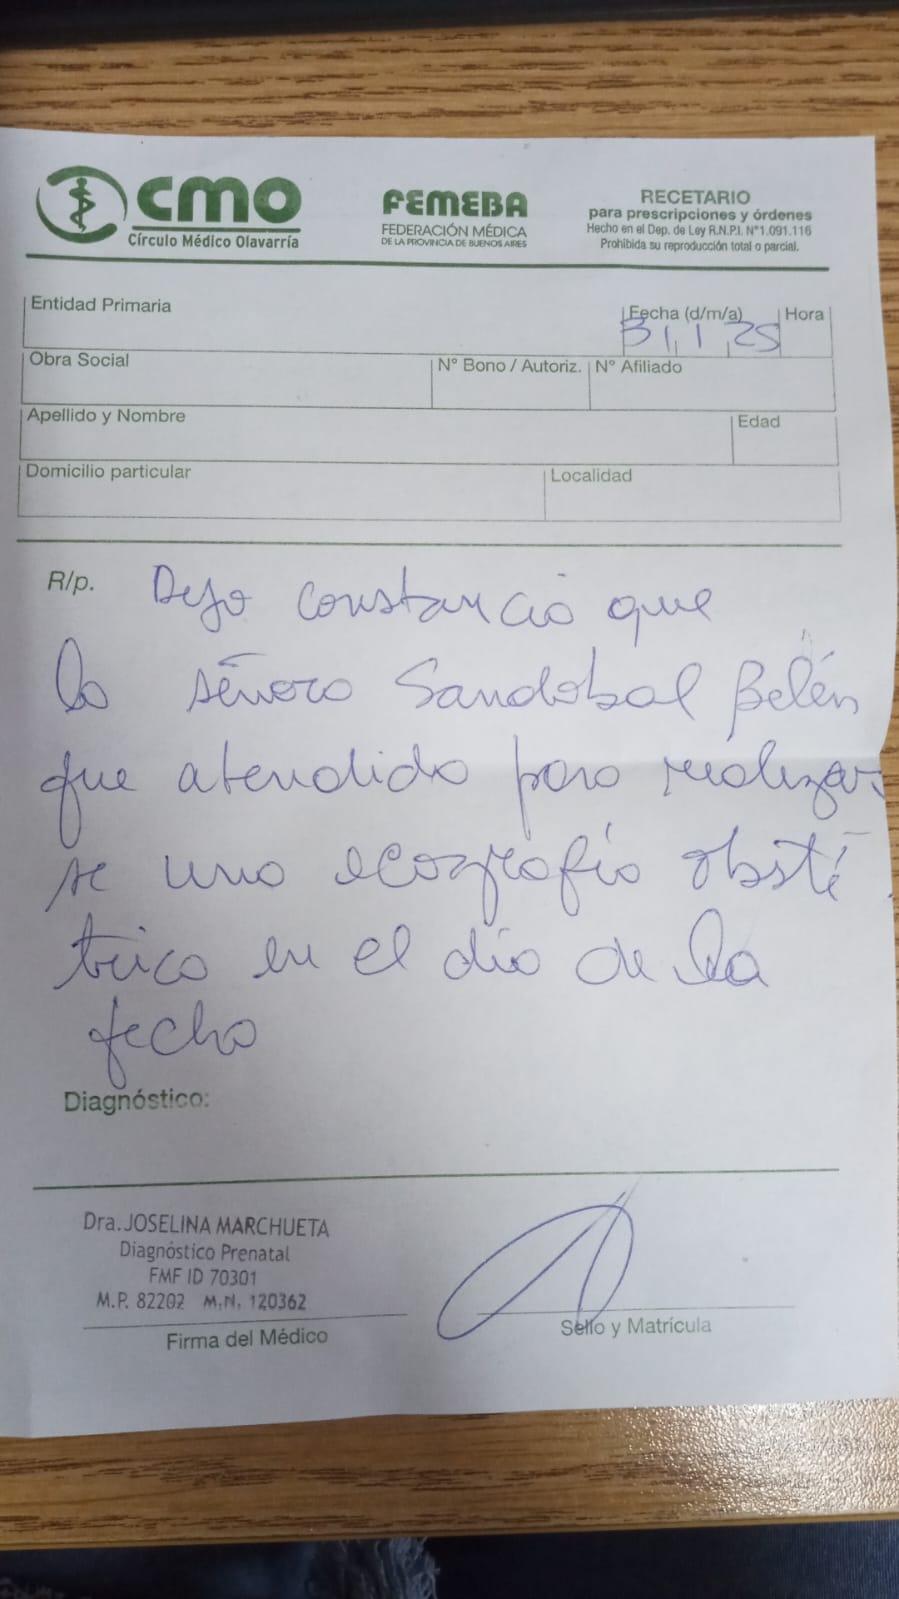 CMO
Círculo Médico Olavarría
FEMEBA
FEDERACIÓN MÉDICA
DE LA PROVINCIA DE BUENOS AIRES
RECETARIO
para prescripciones y órdenes
Hecho en el Dep. de Ley R.N.P.I. N°1.091.116
Prohibida su reproducción total o parcial.
Entidad Primaria
Fecha (d/m/a) Hora
31 1 25
Obra Social N° Bono / Autoriz. N° Afiliado
Apellido y Nombre Edad
Domicilio particular Localidad
R/p. Dejo constancia que
la señora Sandobal Belén
fue atendida para realizar
se una ecografía obsté
trica en el día de la
fecha
Diagnóstico:
Dra. JOSELINA MARCHUETA
Diagnóstico Prenatal
FMF ID 70301
M.P. 82202 M.N. 120362
Firma del Médico
Sello y Matrícula